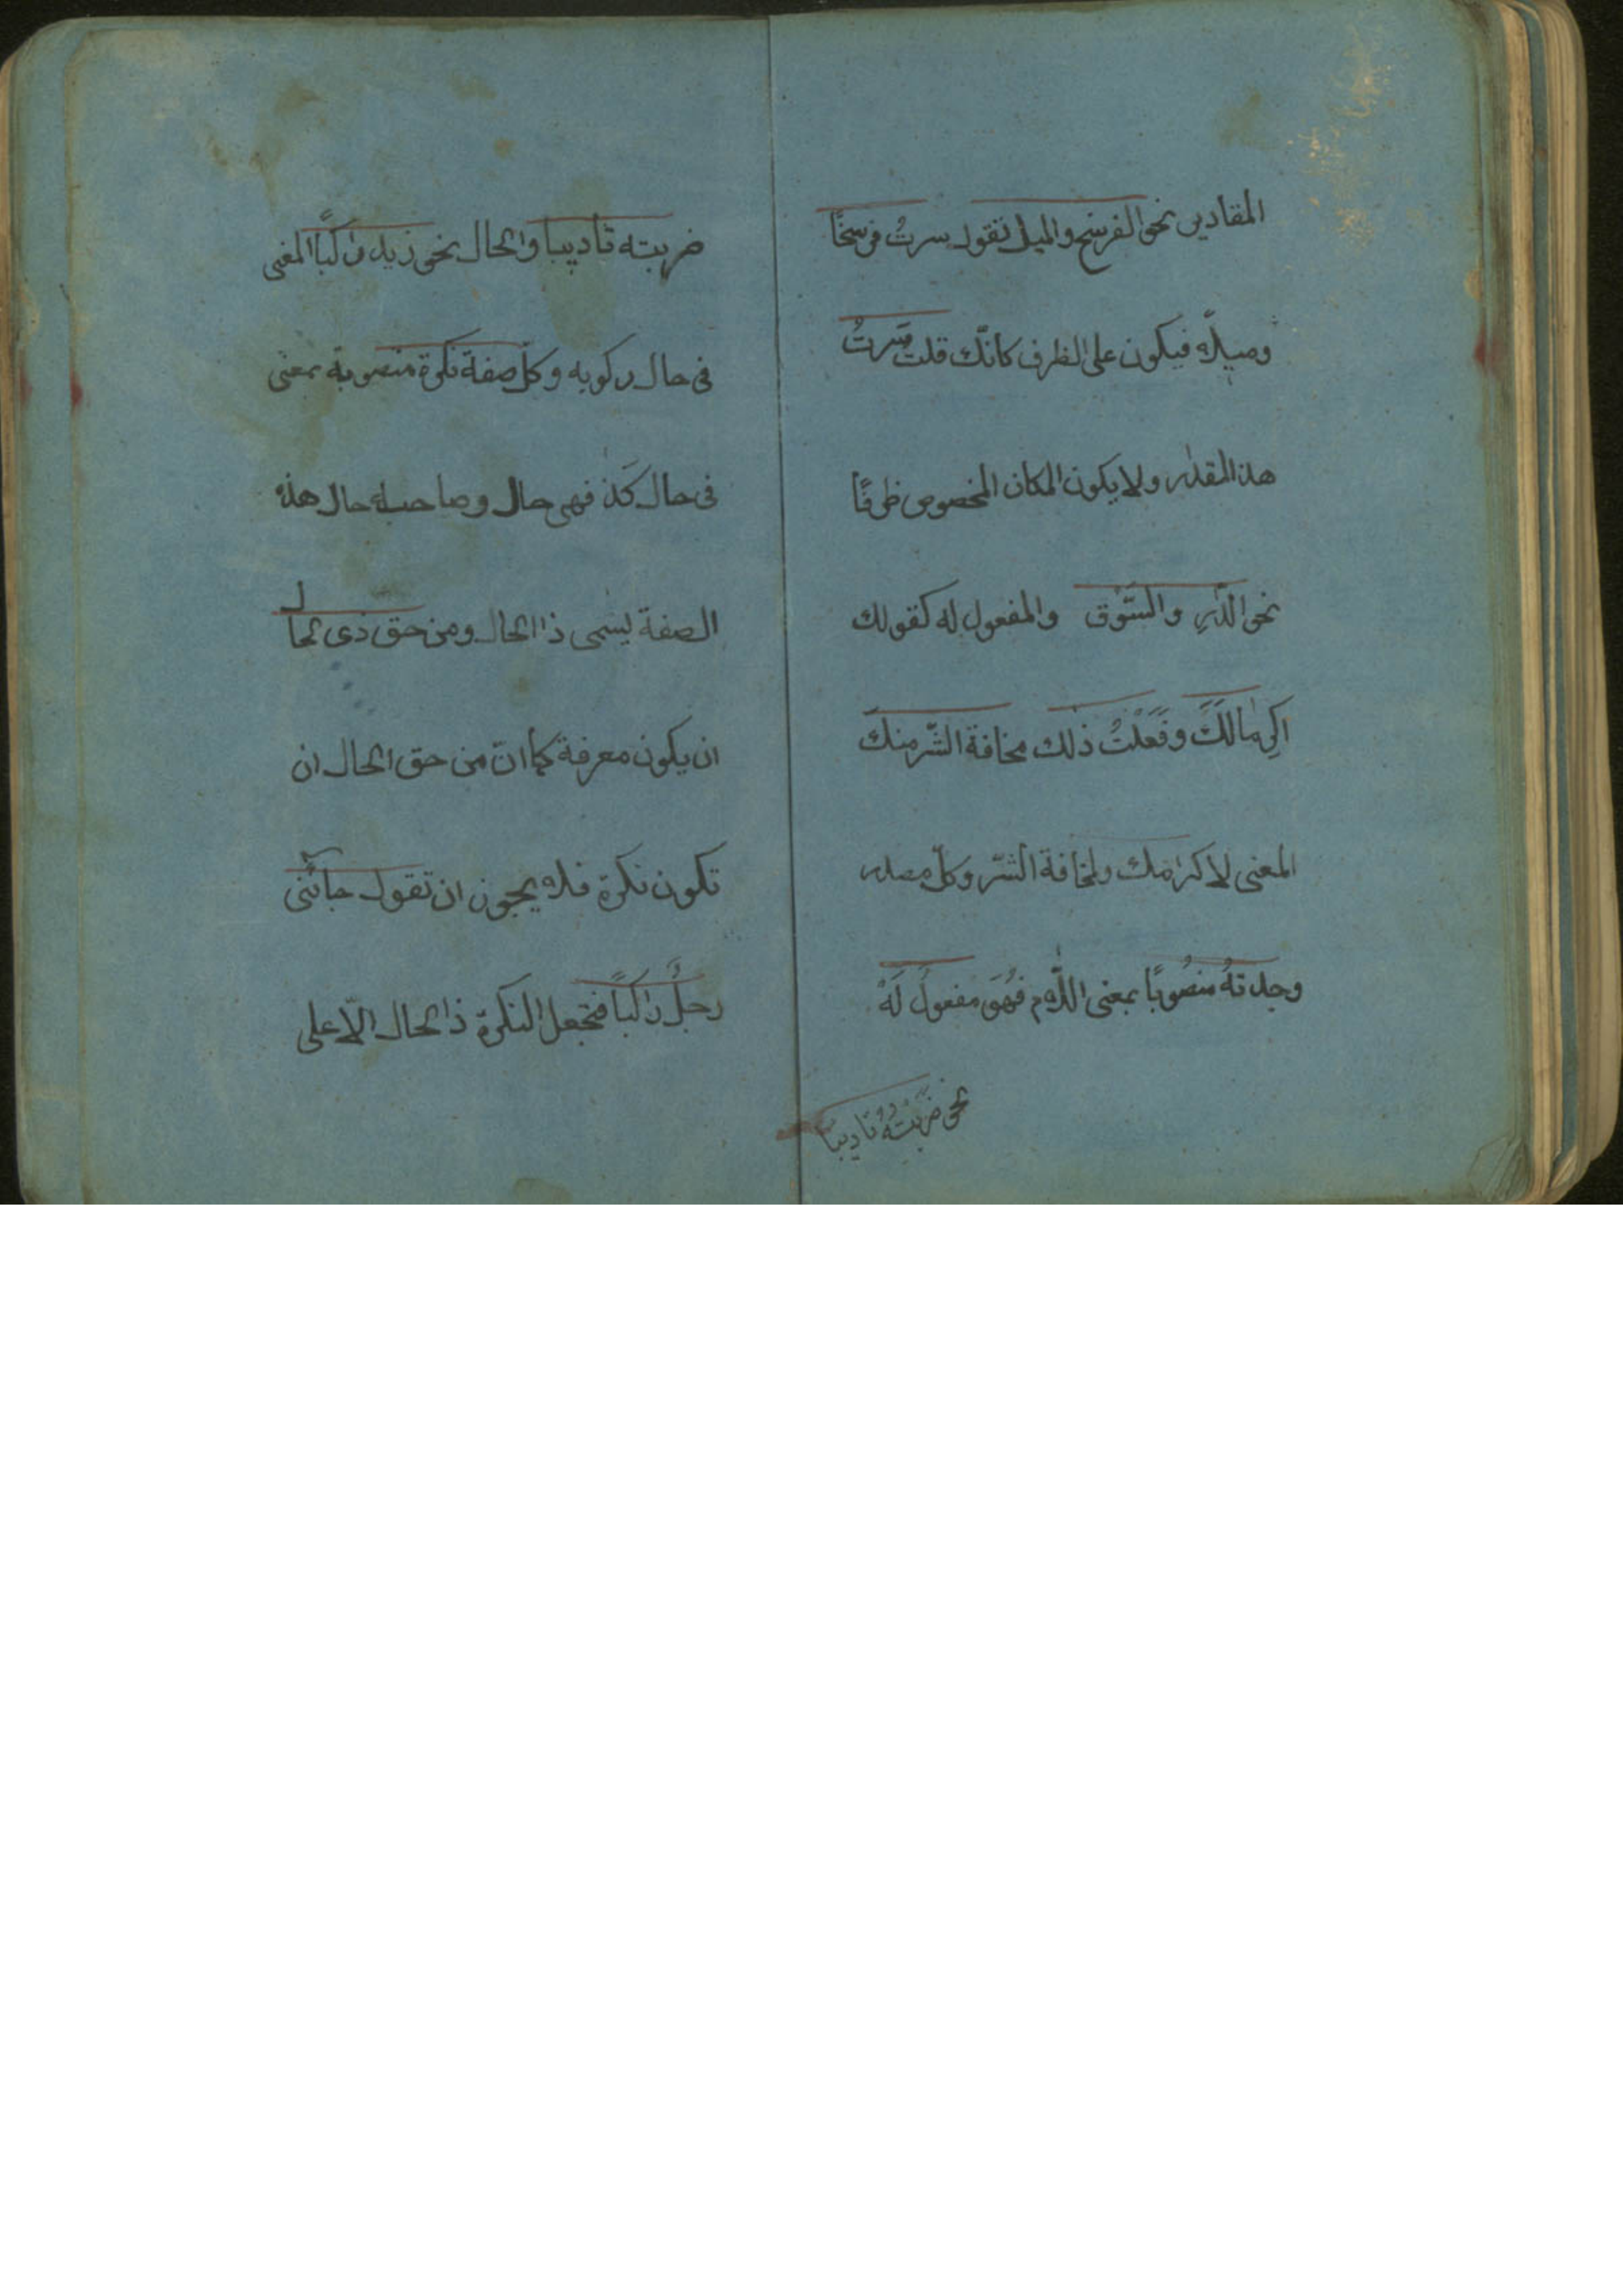 المقادير نحو الفرسخ والميل تقول سرتُ فرسخًا
وميلًا فيكون على الظرف كانّك قلت سَرتُ
هذا المقدار ولا يكون المكان المخصوص ظرفًا
نحو الدّارِ والسّوق والمفعول له كقولك
اكرامالَكَ وفَعَلْتُ ذلك مخافة الشّر منكَ
المعنى لاكرامك ولمخافة الشّر وكلّ مصدر
وجدتهُ منصُوبًا بمعنى اللّام فهُوَ مفعولٌ لَهُ
نحو ضَرَبْتُهُ تاديبًا
ضربته تاديبا والحال نحو زيد راكبًا المعنى
فى حال ركوبه وكلّ صفة نكرة منصوبة بمعنى
فى حال كَذا فهى حال وصاحبه حال هذه
الصفة يسمى ذا الحال ومن حق ذى الحال
ان يكون معرفة كما انّ من حق الحال ان
تكون نكرة فلا يجوز ان تقول جائنى
رجلٌ راكبًا فتجعل النكرة ذا الحال الّا على